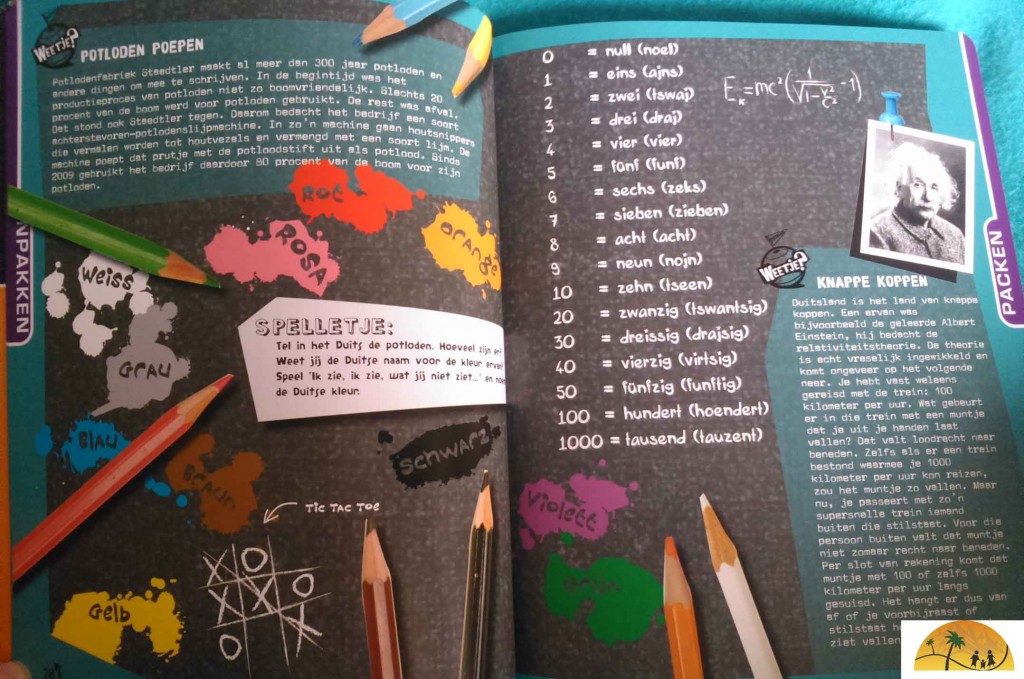 WEETJE?
POTLODEN POEPEN
Potlodenfabriek Staedtler maakt al meer dan 300 jaar potloden en
andere dingen om mee te schrijven. In de begintijd was het
productieproces van potloden niet zo boomvriendelijk. Slechts 20
procent van de boom werd voor potloden gebruikt. De rest was afval.
Dat stond ook Staedtler tegen. Daarom bedacht het bedrijf een soort
achterstevoren-potlodenslijpmachine. In zo'n machine gaan houtsnippers
die vermalen worden tot houtvezels en vermengd met een soort lijm. De
machine poept dat prutje met de potloodstift uit als potlood. Sinds
2009 gebruikt het bedrijf daardoor 80 procent van de boom voor zijn
potloden.
NPAKKEN
ROT
ROSA
ORANGE
WEISS
GRAU
SPELLETJE:
Tel in het Duits de potloden. Hoeveel zijn er?
Weet jij de Duitse naam voor de kleur ervan?
Speel 'Ik zie, ik zie, wat jij niet ziet...' en
de Duitse kleur.
BLAU
BRAUN
SCHWARZ
TIC TAC TOE
GELB
0 = null (noel)
1 = eins (ajns)
2 = zwei (tswaj)
3 = drei (draj)
4 = vier (vier)
5 = fünf (funf)
6 = sechs (zeks)
7 = sieben (zieben)
8 = acht (acht)
9 = neun (nojn)
10 = zehn (tseen)
20 = zwanzig (tswantsig)
30 = dreissig (drajsig)
40 = vierzig (virtsig)
50 = fünfzig (funftig)
100 = hundert (hoendert)
1000 = tausend (tauzent)
VIOLETT
GRÜN
Eₖ=mc²(1/√(1-v²/c²) -1)
WEETJE?
KNAPPE KOPPEN
Duitsland is het land van knappe
koppen. Een ervan was
bijvoorbeeld de geleerde Albert
Einstein, hij bedacht de
relativiteitstheorie. De theorie
is echt vreselijk ingewikkeld en
komt ongeveer op het volgende
neer. Je hebt vast weleens
gereisd met de trein: 100
kilometer per uur. Wat gebeurt
er in die trein met een muntje
dat je uit je handen laat
vallen? Dat valt loodrecht naar
beneden. Zelfs als er een trein
bestond waarmee je 1000
kilometer per uur kon reizen,
zou het muntje zo vallen. Maar
nu, je passeert met zo'n
supersnelle trein iemand
buiten die stilstaat. Voor die
persoon buiten valt dat muntje
niet zomaar recht naar beneden.
Per slot van rekening komt dat
muntje met 100 of zelfs 1000
kilometer per uur langs
gesuisd. Het hangt er dus van
af of je voorbijraast of
stilstaat
ziet vallen
PACKEN